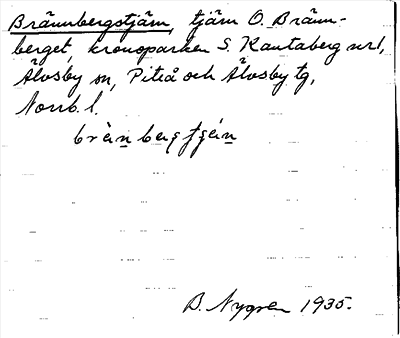 Brännbergstjärn, tjärn O. Bränn-
berget, kronoparken S. Kautaberg url,
Älvsby sn, Piteå och Älvsby tg,
Norrb. l.
brä̀n bærs ʃæ̀n
B. Nygren 1935.